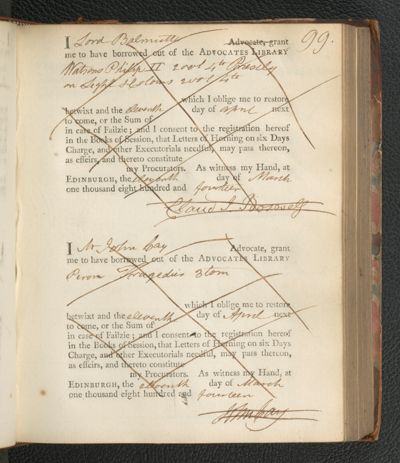 99.
I Lord Balmuto Advocate, grant
me to have borrowed out of the ADVOCATES LIBRARY
Watsons Philip II 2 vol 4to Priestley
on Light & Colours 2 vol 4to
which I oblige me to restore
betwixt and the eleventh day of april next
to come, or the Sum of
in case of Failzie; and I consent to the registration hereof
in the Books of Session, that Letters of Horning on six Days
Charge, and other Executorials needful, may pass thereon,
as effeirs, and thereto constitute
my Procurators. As witness my Hand, at
EDINBURGH, the eleventh day of March
one thousand eight hundred and fourteen
Claud I. Boswell
I Mr John Cay Advocate, grant
me to have borrowed out of the ADVOCATES LIBRARY
Tragedies 2 tom
which I oblige me to restore
betwixt and the eleventh day of April next
to come, or the Sum of
in case of Failzie; and I consent to the registration hereof
in the Books of Session, that Letters of Horning on six Days
Charge, and other Executorials needful, may pass thereon,
as effeirs, and thereto constitute
my Procurators. As witness my Hand, at
EDINBURGH, the eleventh day of March
one thousand eight hundred and fourteen
John Cay